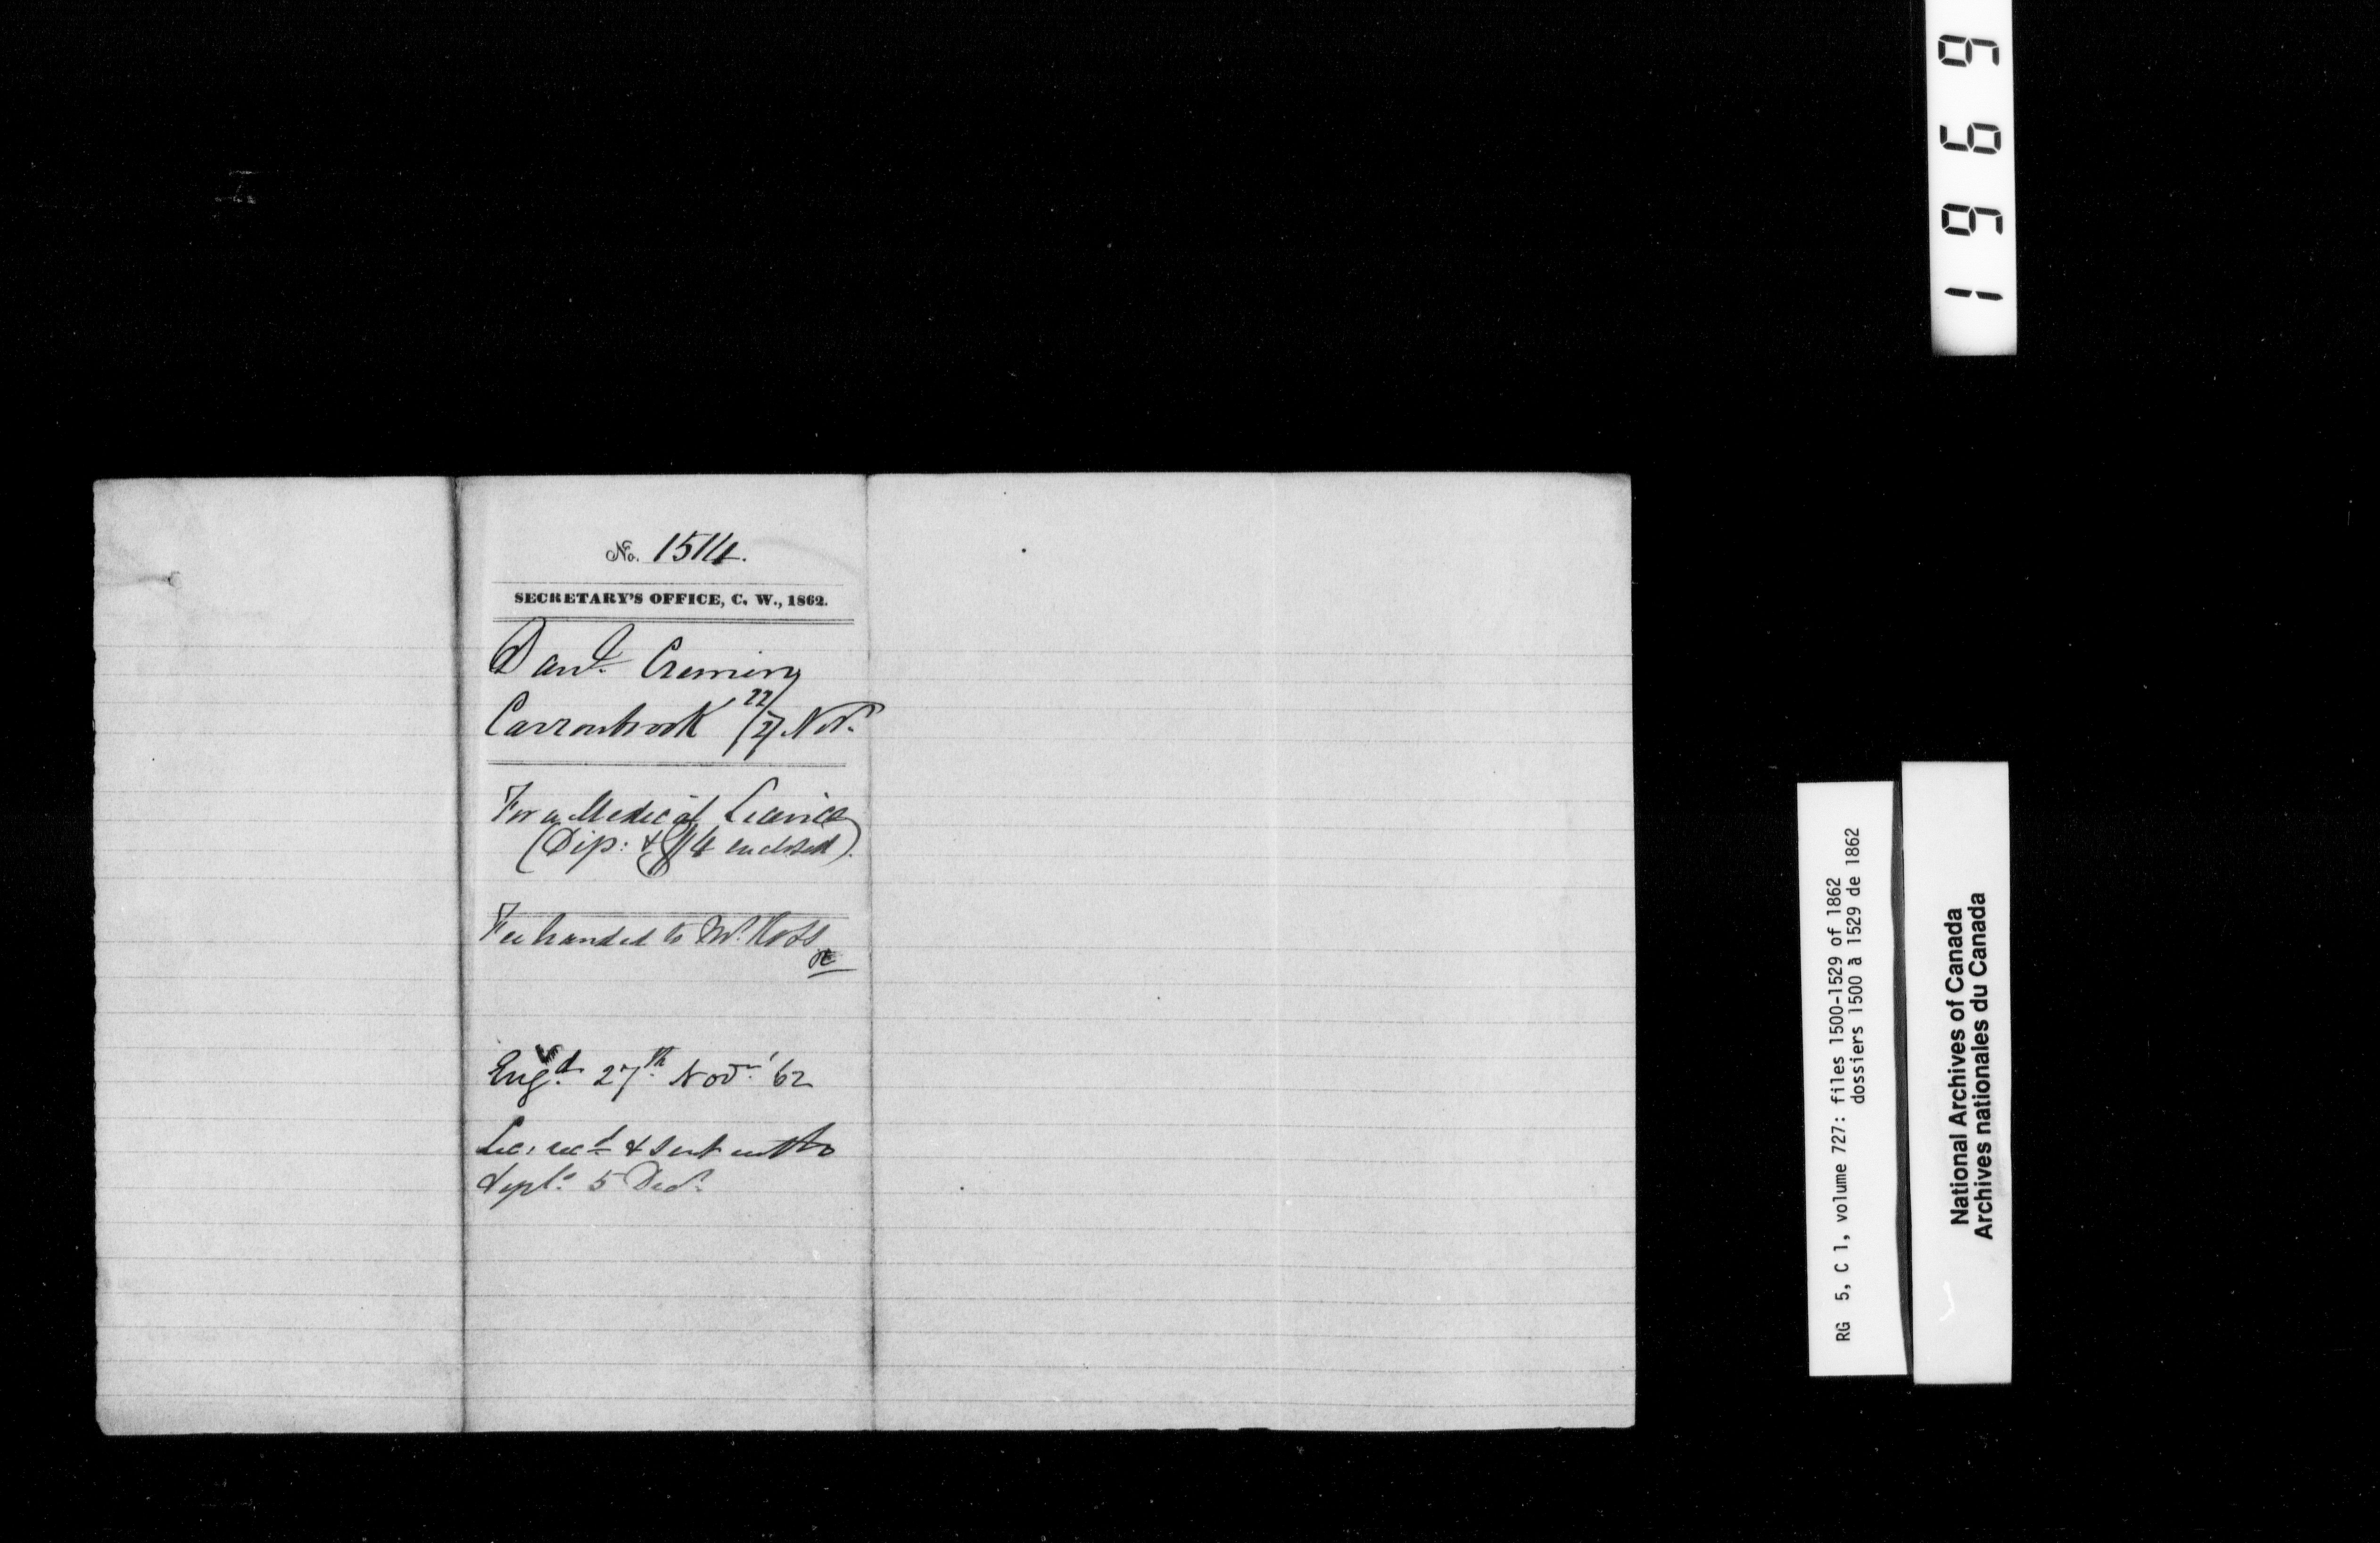 No. 1514.
SECRETARY'S OFFICE, C. W., 1862.
Danl. Cremin
Carronbrook 22/27 Nov.
For a Medical Licence
(Dip: & $4 enclosed).
Fee handed to Mr. Ross
Engd. 27th. Novr. '62
Lic. recd. & sent
5 Decr.
1969
RG 5, C 1, volume 727: files 1500-1529 of 1862
dossiers 1500 à 1529 de 1862
National Archives of Canada
Archives nationales du Canada